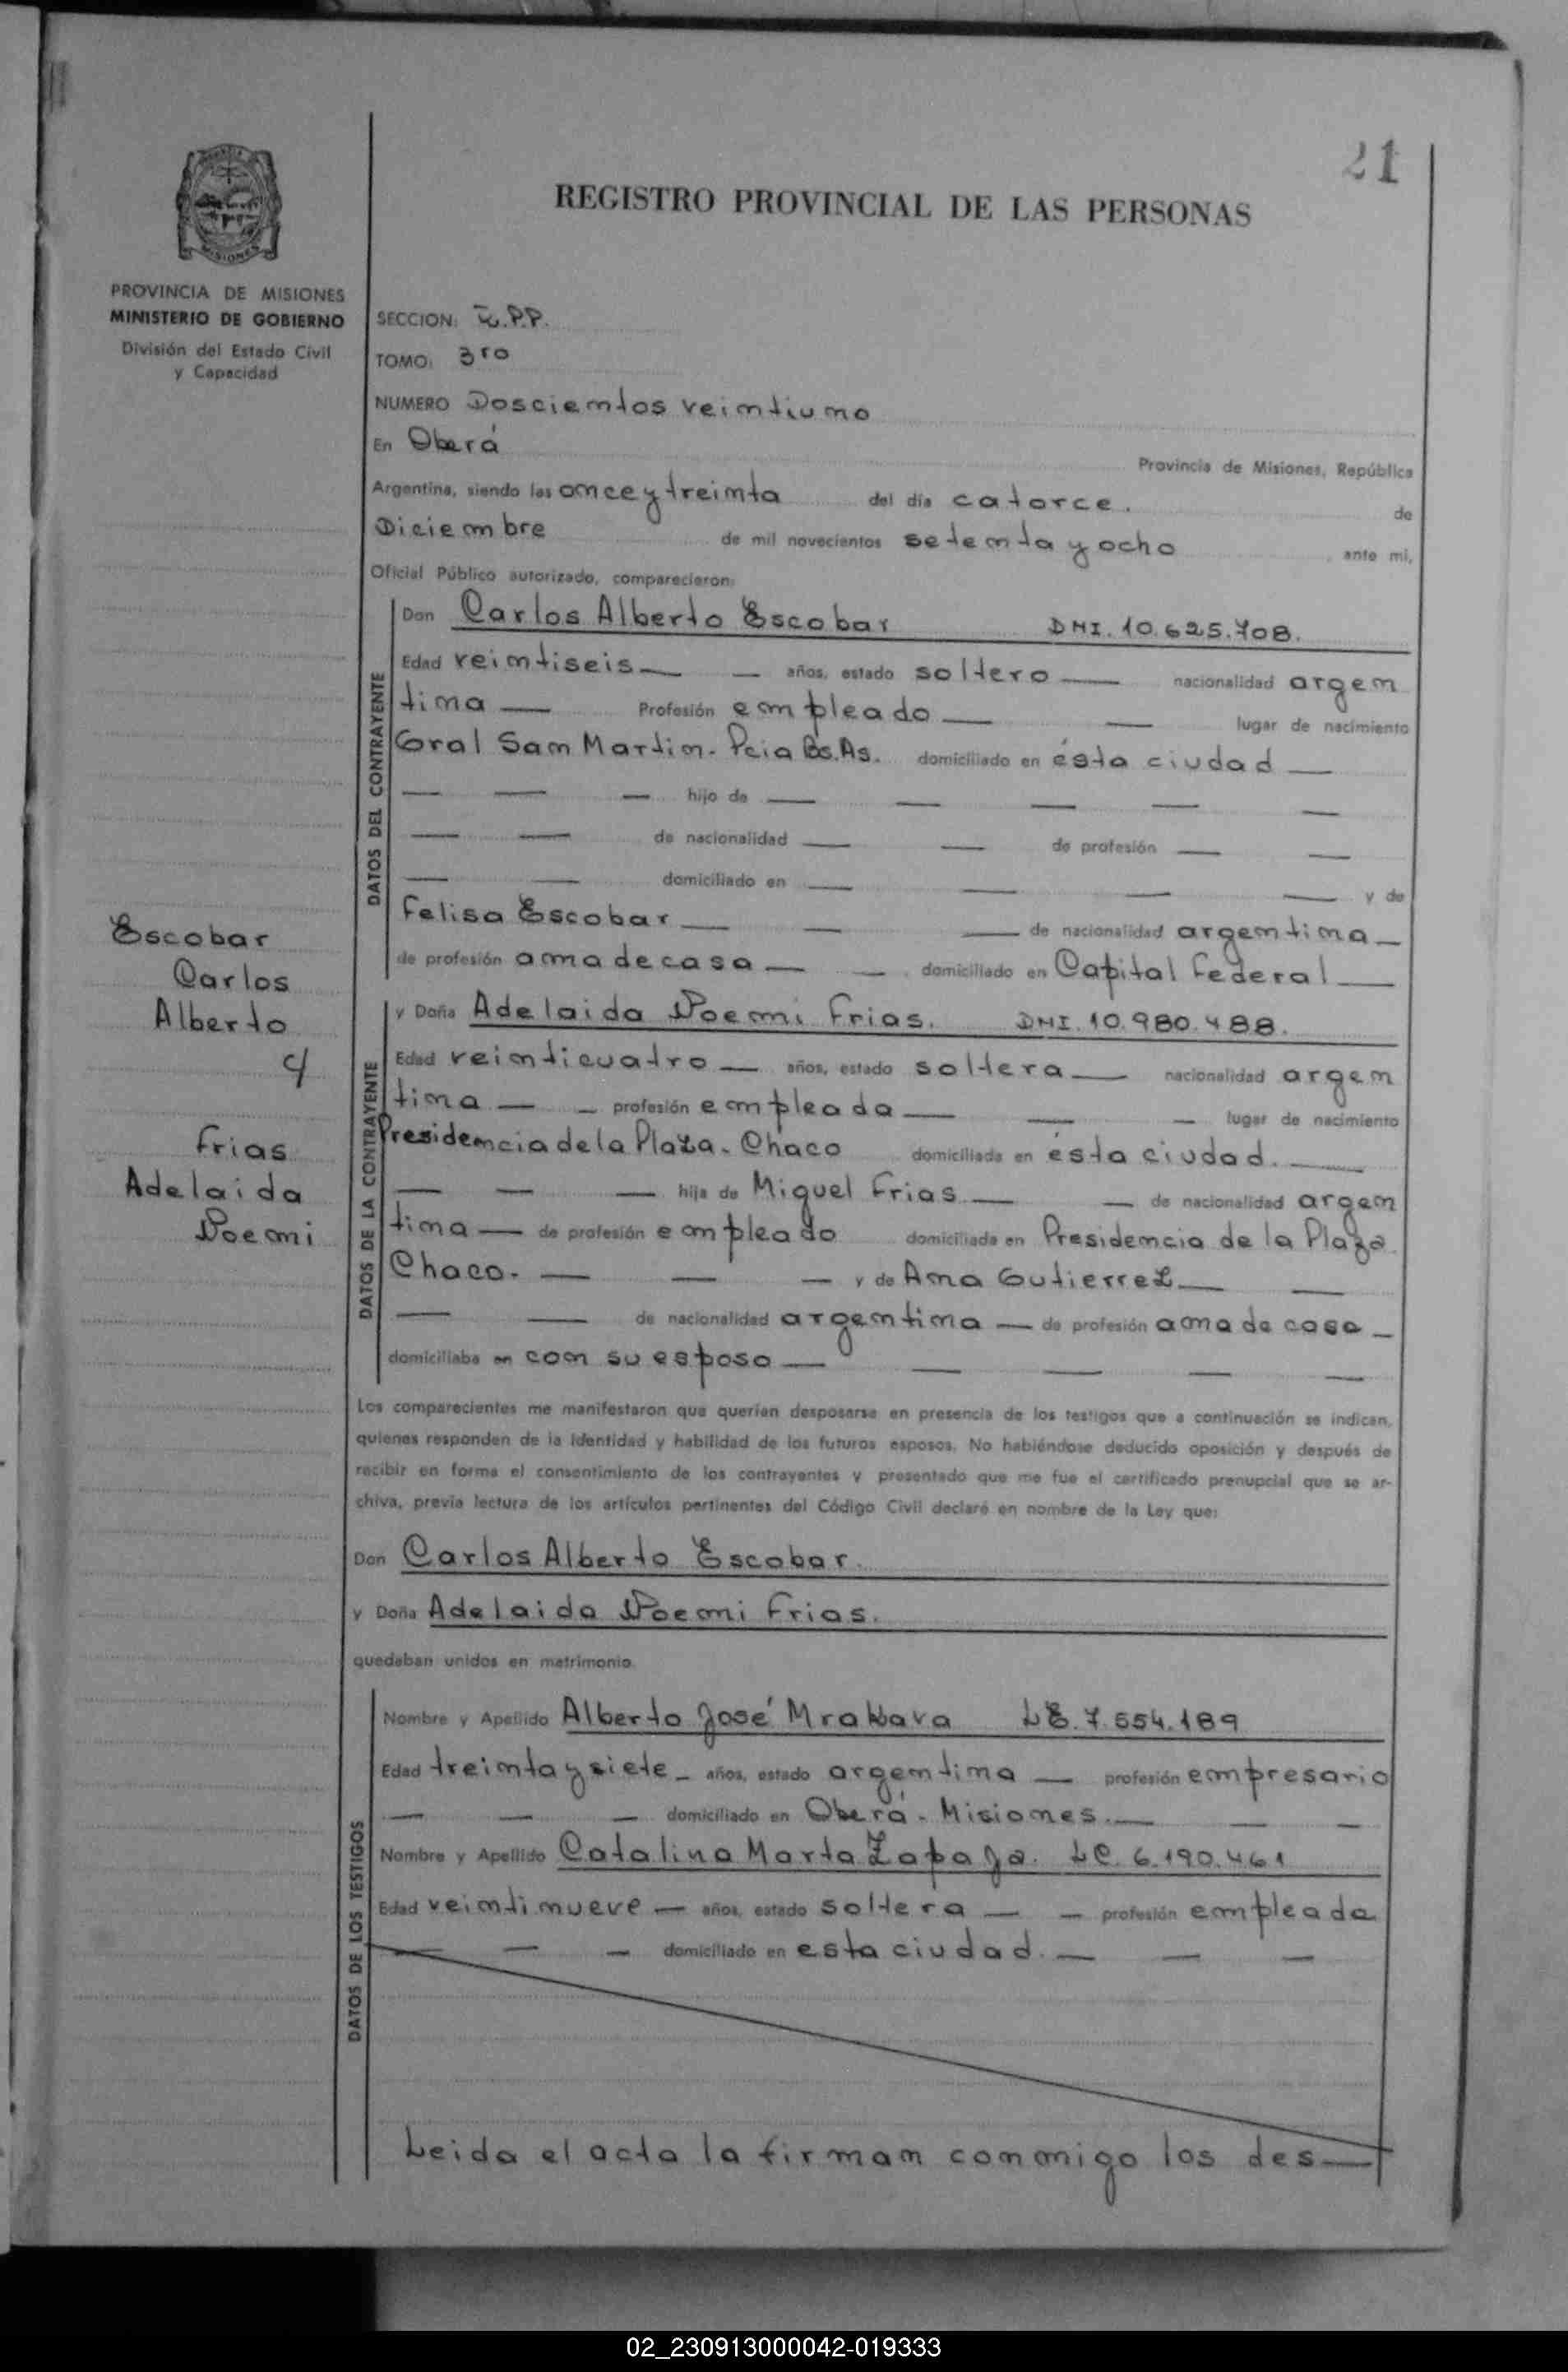 21
REGISTRO PROVINCIAL DE LAS PERSONAS
PROVINCIA DE MISIONES
MINISTERIO DE GOBIERNO
División del Estado Civil
y Capacidad
SECCION:
TOMO: 3ro
NUMERO Doscientos veintiuno
En Oberá
Provincia de Misiones, República
Argentina, siendo las once y treinta del día catorce. de
Diciembre de mil novecientos setenta y ocho ante mi,
Oficial Público autorizado, comparecieron:
DATOS DEL CONTRAYENTE
Don Carlos Alberto Escobar DNI. 10.625.708.
Edad veintiseis — — años, estado soltero — nacionalidad argen
tina — Profesión empleado — — lugar de nacimiento
Gral San Martin. Pcia Bs.As. domiciliado en ésta ciudad —
— — — hijo de — — — — —
— — de nacionalidad — — de profesión — —
— — domiciliado en — — — — y de
Felisa Escobar — — — de nacionalidad argentina —
de profesión ama de casa — — domiciliado en Capital Federal —
Escobar
Carlos
Alberto
c/
Frias
Adelaida
Noemi
DATOS DE LA CONTRAYENTE
y Doña Adelaida Noemi Frias. DNI. 10.980.488.
Edad veinticuatro — años, estado soltera — nacionalidad argen
tina — — profesión empleada — — — lugar de nacimiento
Presidencia de la Plaza. Chaco domiciliada en ésta ciudad. —
— — — hija de Miguel Frias — — de nacionalidad argen
tina — de profesión empleado domiciliada en Presidencia de la Plaza
Chaco. — — — y de Ana Gutierrez — —
— — de nacionalidad argentina — de profesión ama de casa —
domiciliaba en con su esposo — — — — —
Los comparecientes me manifestaron que querían desposarse en presencia de los testigos que a continuación se indican,
quienes responden de la identidad y habilidad de los futuros esposos. No habiéndose deducido oposición y después de
recibir en forma el consentimiento de los contrayentes y presentado que me fue el certificado prenupcial que se ar-
chiva, previa lectura de los artículos pertinentes del Código Civil declaré en nombre de la Ley que:
Don Carlos Alberto Escobar.
y Doña Adelaida Noemi Frias.
quedaban unidos en matrimonio.
DATOS DE LOS TESTIGOS
Nombre y Apellido Alberto José LE. 7.554.189
Edad treinta y siete — años, estado argentina — profesión empresario
— — — domiciliado en Oberá - Misiones. — — —
Nombre y Apellido Catalina Marta LC. 6.190.461
Edad veintinueve — años, estado soltera — — profesión empleada
— — — domiciliado en esta ciudad. — — —
Leida el acta la firman conmigo los des—
02_230913000042-019333